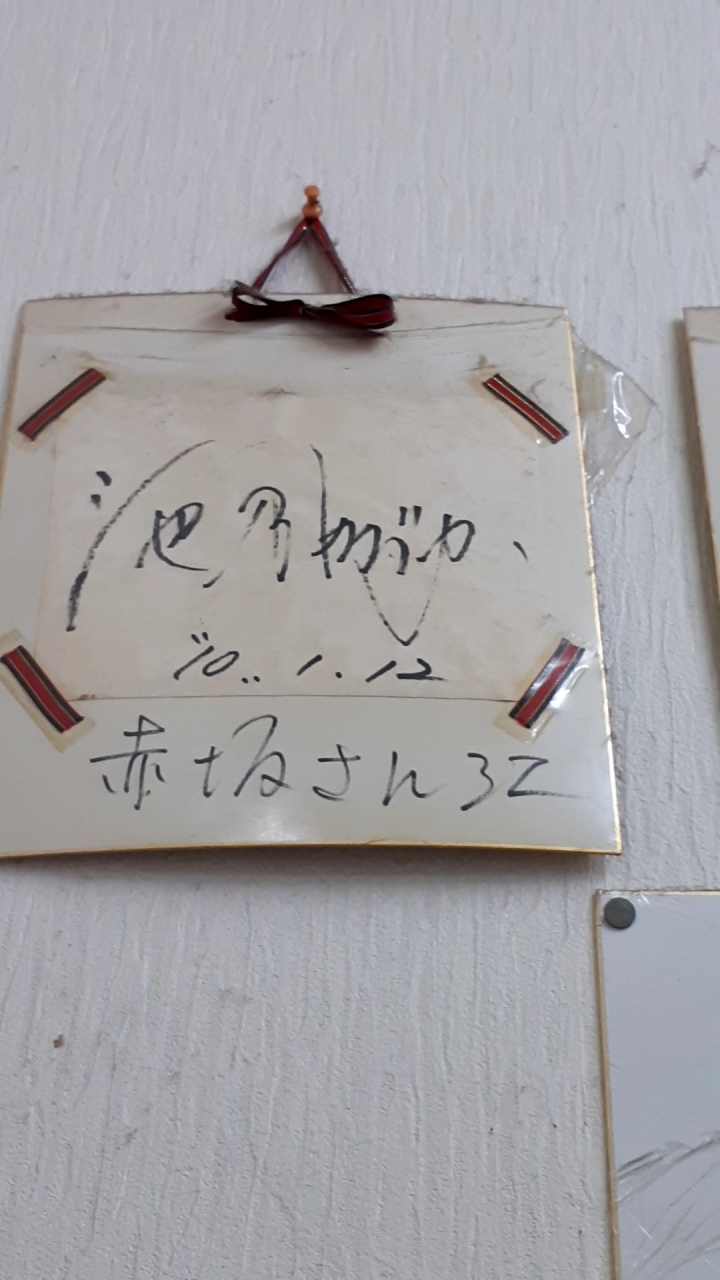 池乃めだか
'10. 1. 12
赤坂さん江